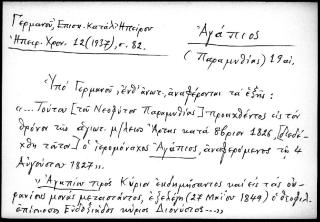 Γερμανοῦ, Ἐπισκ. Κατάλ. Ἠπείρου
Ἠπειρ. Χρον. 12 (1937), σ. 82.
Ἀγάπιος
(Παραμυθίας) 19 αἰ.
Ὑπὸ Γερμανοῦ, ἔνθ' ἀνωτ. ἀναφέρονται τὰ ἑξῆς:
«... Τούτου [τοῦ Νεοφύτου Παραμυθίας] προαχθέντος εἰς τὸν
θρόνον τῆς ἁγιωτ. μ/λεως Ἄρτης κατὰ 8βριον 1826,
ὁ ἱερομόναχος Ἀγάπιος, ἀναφερόμενος τῇ 4
Αὐγούστου 1827».
«Ἀγαπίου πρὸς Κύριον ἐκδημήσαντος καὶ εἰς τὰς οὐ-
ρανίους μονὰς μεταστάντος, ἐξελέγη (27 Μαΐου 1849) ὁ θεοφιλ.
ἐπίσκοπος κύριος Διονύσιος...»